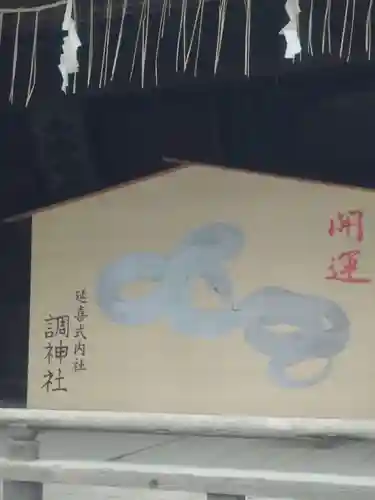 開運
延喜式内社
調神社